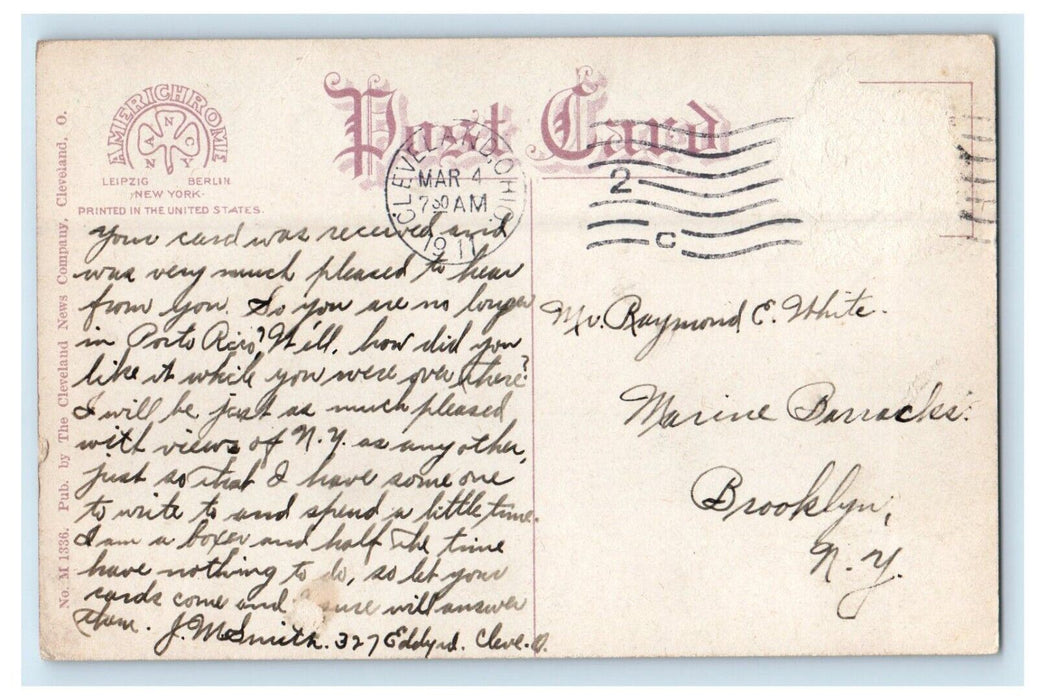 AMERICHROME
NANCY
LEIPZIG BERLIN
NEW YORK
PRINTED IN THE UNITED STATES.
Post Card
CLEVELAND, OHIO.
MAR 4
730 AM
1911
2
C
No. M 1336. Pub. by The Cleveland News Company, Cleveland, O.
Your card was received and
was very much pleased to hear
from you. So you are no longer
in Porto Rico? Will, how did you
like it while you were over there?
I will be just as much pleased
with views of N.Y. as any other,
just so that I have some one
to write to and spend a little time.
I am a boxer and half the time
have nothing to do, so let your
cards come and sure will answer
them. J. M Smith. 327 Eddy rd. Cleve. O.
Mr. Raymond E. White.
Marine Barracks.
Brooklyn,
N. Y.